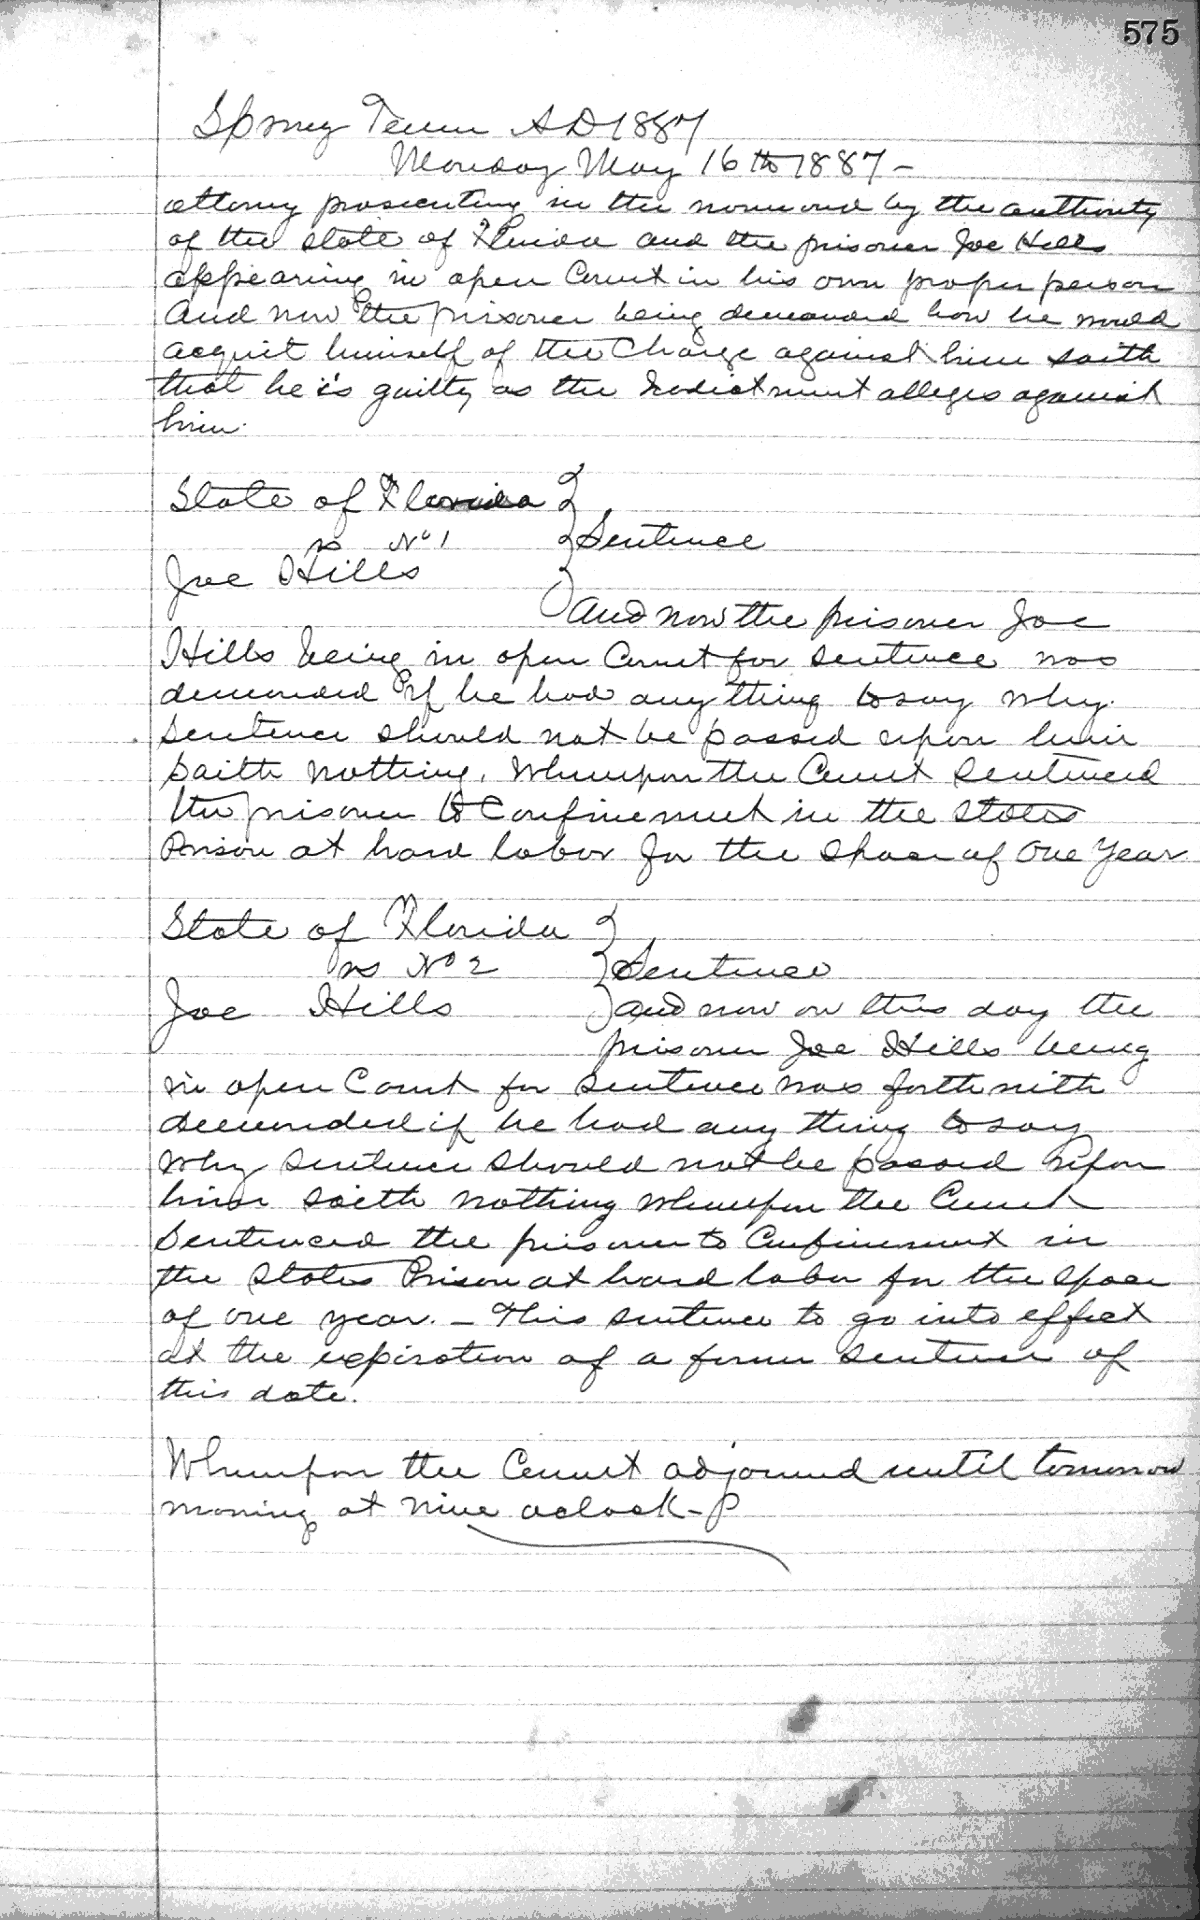 575
Spring Term AD 1887
Monday May 16th 1887 -
attorney prosecuting in the name and by the authority
of the State of Florida and the prisoner Joe Hills
appearing in open Court in his own proper person
And now the prisoner being demanded how he would
acquit himself of the Charge against him saith
that he is guilty as the Indictment alleges against
him.
State of Florida }
vs No 1 } Sentence
Joe Hills }
And now the prisoner Joe
Hills being in open Court for sentence was
demanded if he had any thing to say why
sentence should not be passed upon him
saith nothing. Whereupon the Court sentenced
the prisoner to Confinement in the States
Prison at hard labor for the space of One Year
State of Florida }
vs No 2 } Sentence
Joe Hills } and now on this day the
prisoner Joe Hills being
in open Court for sentence was forthwith
demanded if he had any thing to say
Why sentence should not be passed upon
him saith nothing whereupon the Court
sentenced the prisoner to Confinement in
the States Prison at hard labor for the space
of one year. - This sentence to go into effect
at the expiration of a former sentence of
this date.
Whereupon the Court adjourned until tomorrow
morning at nine oclock -